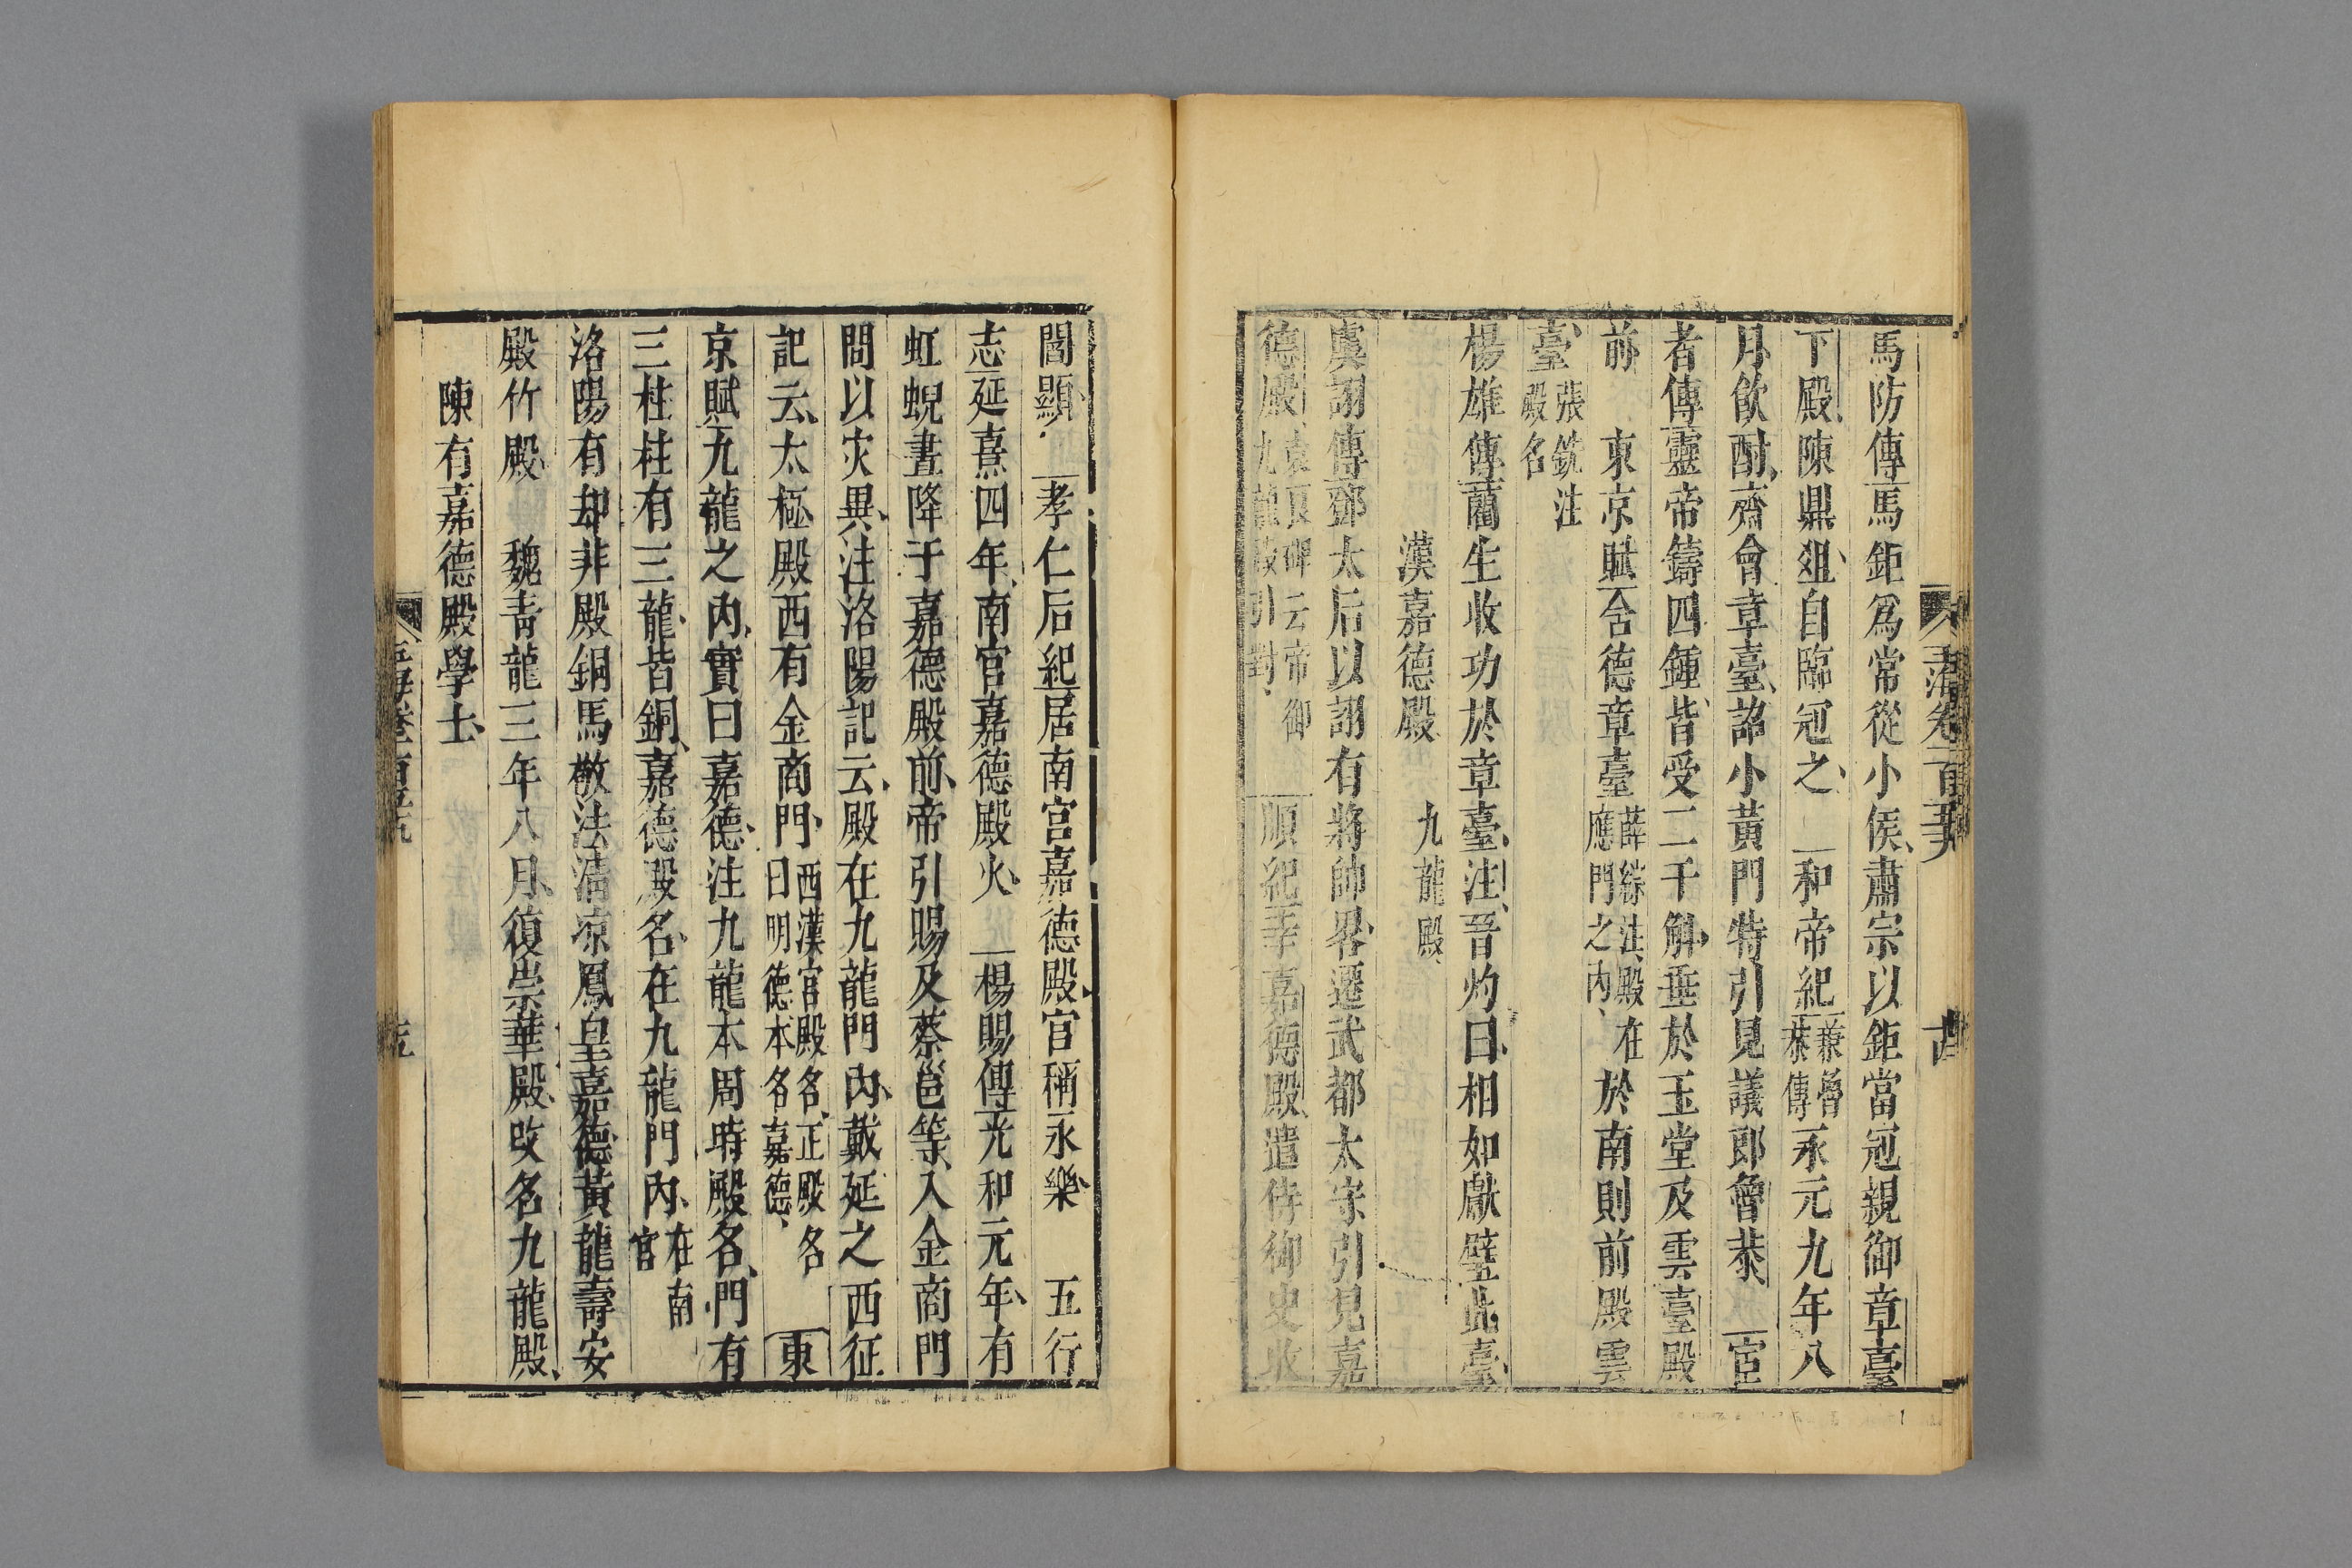 馬防傳馬鉅爲常從小侯肅宗以鉅當冠親御章臺
下殿陳鼎俎自臨冠之 和帝紀兼魯恭傳永元九年八
月飲酎齋會章臺詔小黃門特引見議郎魯恭 宦
者傳靈帝鑄四鍾皆受二千斛垂於玉堂及雲臺殿
前 東京賦含德章臺薛綜注殿在應門之內於南則前殿雲
臺張銑注殿名
楊雄傳藺生收功於章臺注晉灼曰相如獻璧此臺
漢嘉德殿 九龍殿
虞詡傳鄧太后以詡有將帥畧遷武都太守引見嘉
德殿袁良碑云帝御九龍殿引對 順紀幸嘉德殿遣侍御史收
閻顯 孝仁后紀居南宮嘉德殿宮稱永樂 五行
志延熹四年南宮嘉德殿火 楊賜傳光和元年有
虹蜺晝降于嘉德殿前帝引賜及蔡邕等入金商門
問以灾異注洛陽記云殿在九龍門內戴延之西征
記云太極殿西有金商門西漢宮殿名正殿名曰明德本名嘉德 東
京賦九龍之內實曰嘉德注九龍本周時殿名門有
三柱柱有三龍皆銅嘉德殿名在九龍門內在南宮
洛陽有却非殿銅馬敬法清凉鳳皇嘉德黃龍壽安
殿竹殿 魏青龍三年八月復崇華殿改名九龍殿
陳有嘉德殿學士